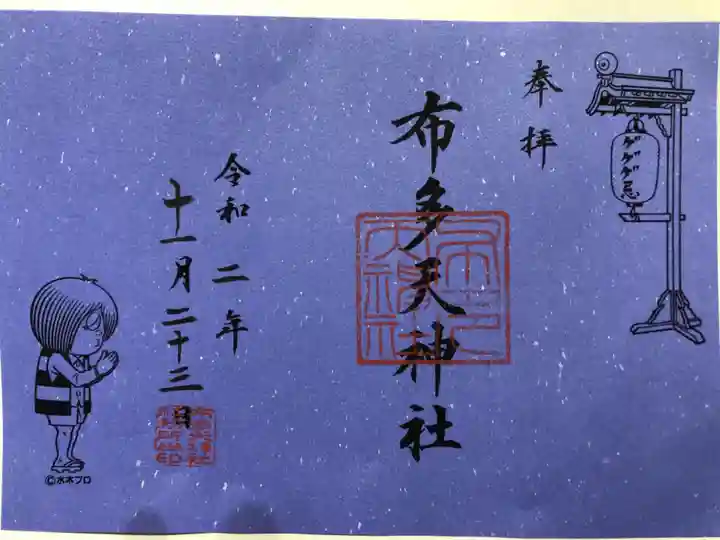 ゲゲゲ忌
奉拝
布多天神社
令和二年
十一月二十三日
©水木プロ